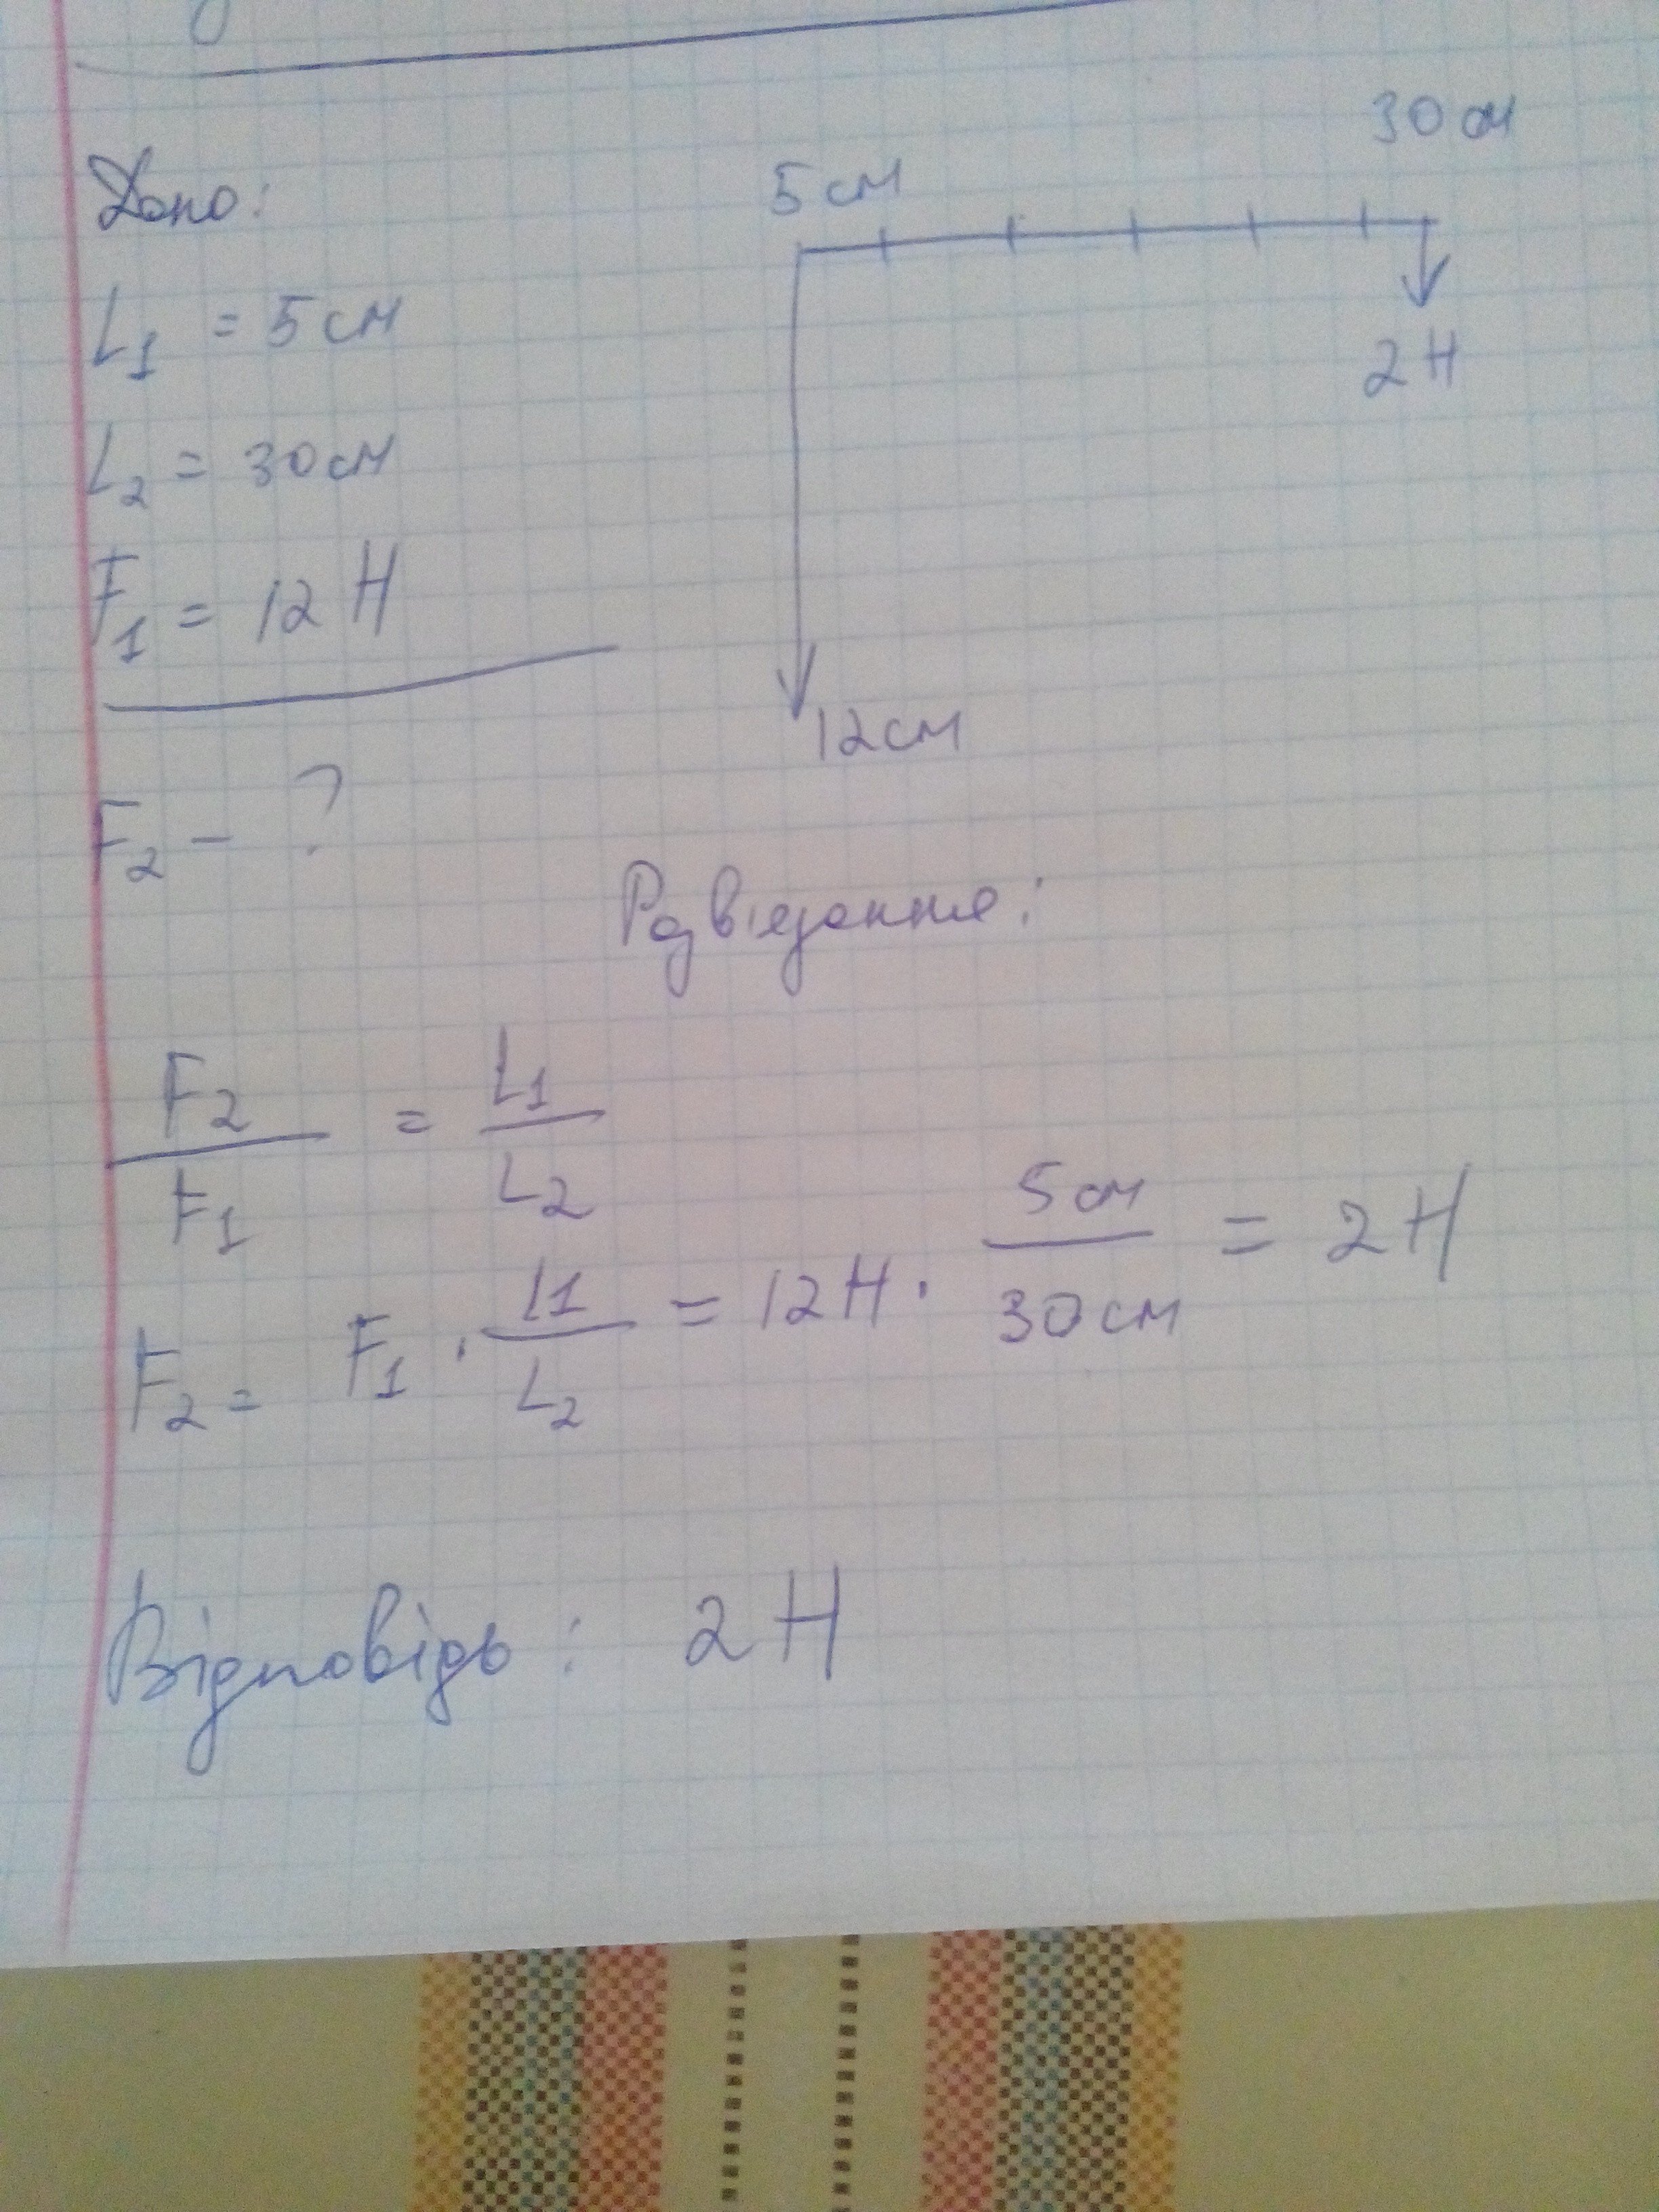 Дано:
L₁ = 5 см
L₂ = 30 см
F₁ = 12 Н
F₂ - ?
5 см
30 см
2 Н
12 см
Розв'язання:
F₂ / F₁ = L₁ / L₂
F₂ = F₁ · l1 / L₂ = 12 Н · 5 см / 30 см = 2 Н
Відповідь: 2 Н